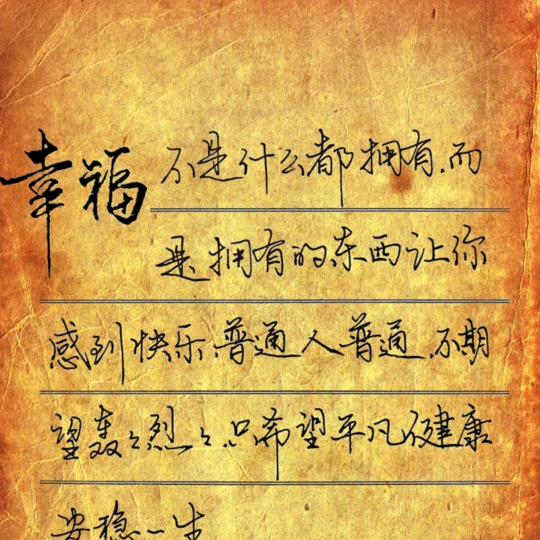 幸福不是什么都拥有.而
是拥有的东西让你
感到快乐.普通人普通.不期
望轰々烈々.只希望平凡健康
安稳一生